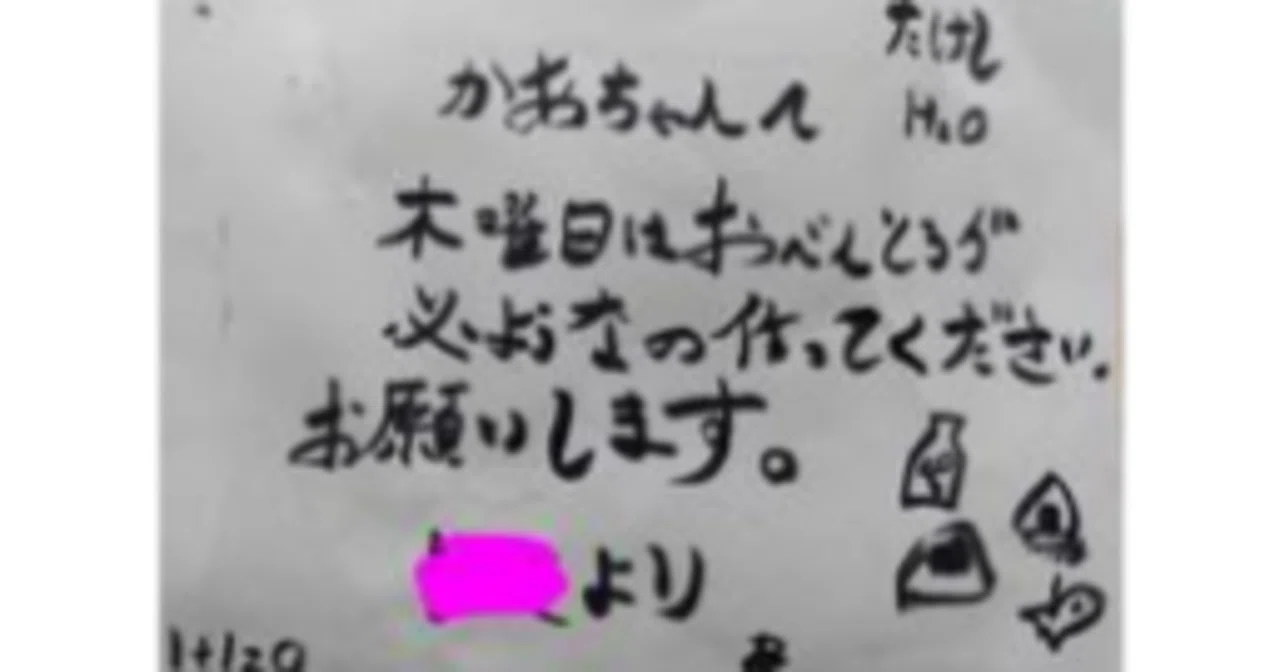 たけし
かあちゃんへ
H₂O
木曜日はおべんとうが
必ような の作ってください.
お願いします。
より